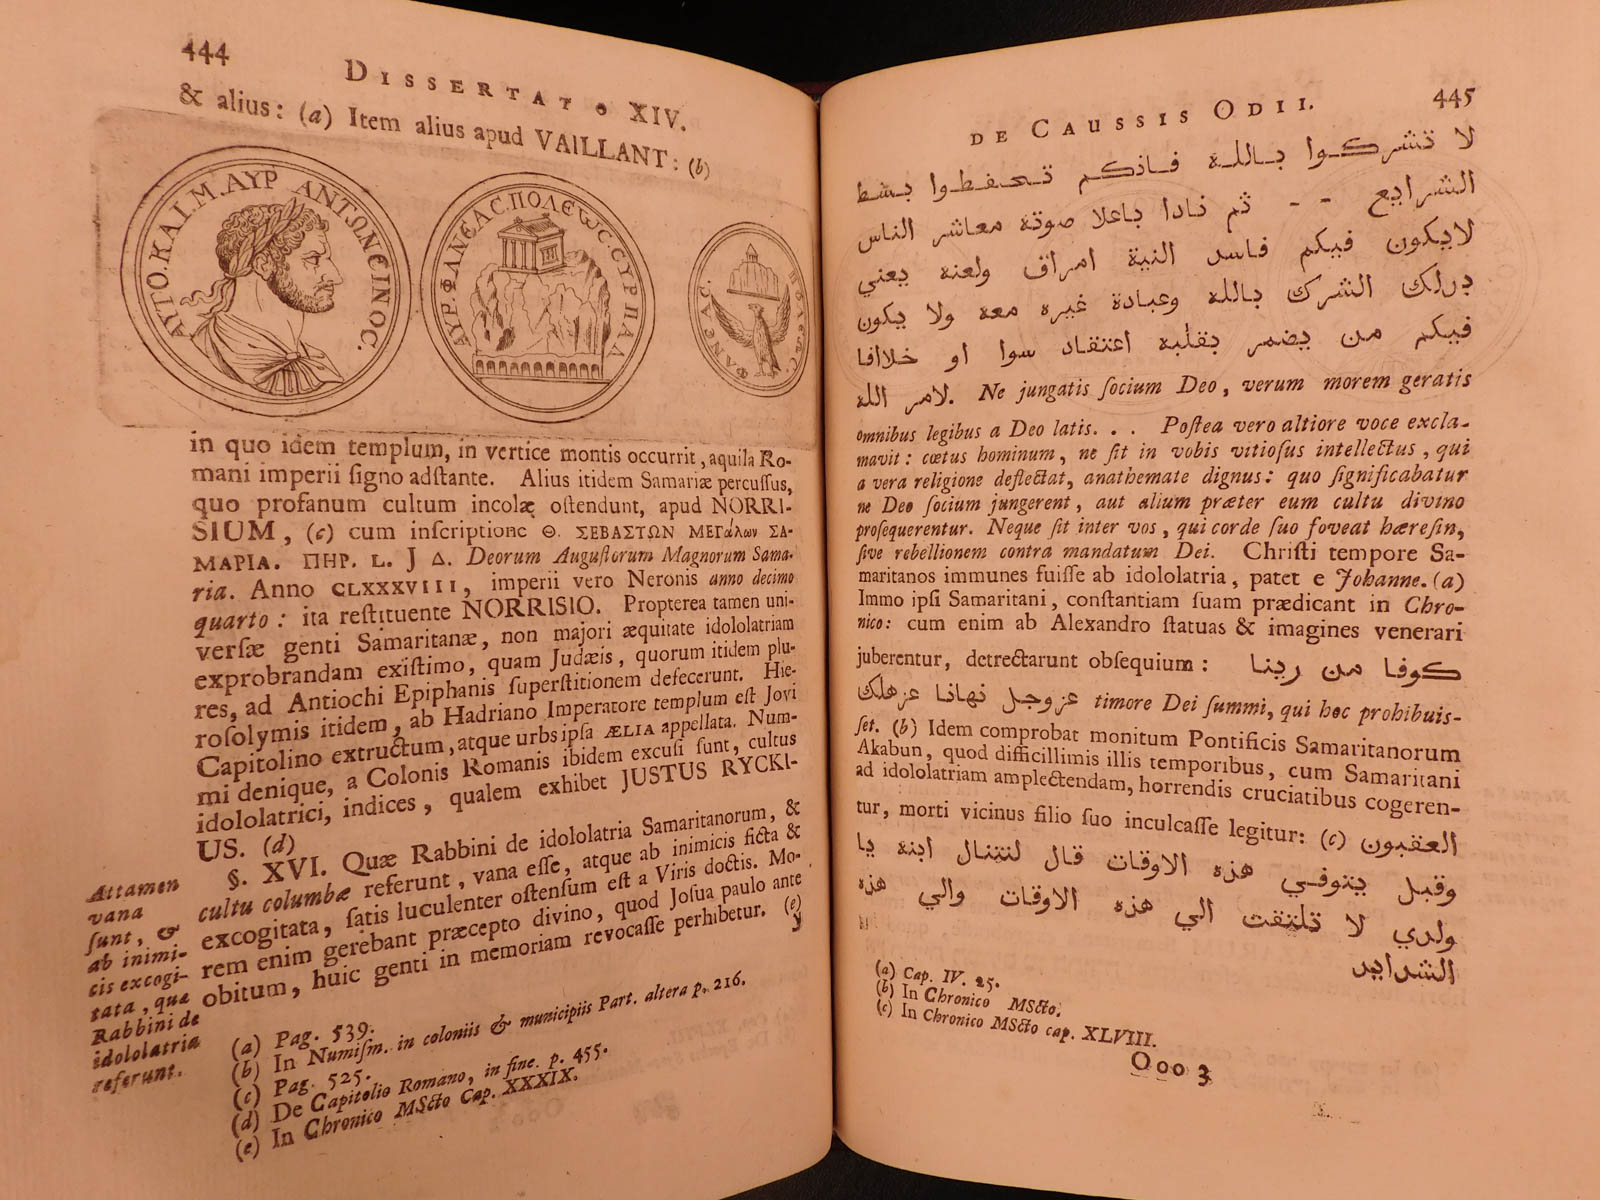 444
DISSERTATIO XIV.
& alius: (a) Item alius apud VAILLANT: (b)
ΑΥΤΟ.ΚΑΙ.Μ.ΑΥΡ ΑΝΤΩΝΕΙΝΟC.
ΑΥΡ.ΦΛ.ΝΕΑC.ΠΟΛΕΩC.CΥΡ.ΠΑΛ
ΦΛ.ΝΕΑC. ΠΟΛΕΩC.
in quo idem templum, in vertice montis occurrit, aquila Ro-
mani imperii signo adstante. Alius itidem Samariæ percussus,
quo profanum cultum incolæ ostendunt, apud NORRI-
SIUM, (c) cum inscriptione Θ. ΣΕΒΑΣΤΩΝ ΜΕΓάλων ΣΑ-
ΜΑΡΙΑ. ΠΗΡ. L. J Δ. Deorum Augustorum Magnorum Sama-
ria. Anno CLXXXVIII, imperii vero Neronis anno decimo
quarto: ita restituente NORRISIO. Propterea tamen uni-
versæ genti Samaritanæ, non majori æquitate idololatriam
exprobrandam existimo, quam Judæis, quorum itidem plu-
res, ad Antiochi Epiphanis superstitionem defecerunt. Hie-
rosolymis itidem, ab Hadriano Imperatore templum est Jovi
Capitolino extructum, atque urbs ipsa ÆLIA appellata. Num-
mi denique, a Colonis Romanis ibidem excusi sunt, cultus
idololatrici, indices, qualem exhibet JUSTUS RYCKI-
US. (d)
§. XVI. Quæ Rabbini de idololatria Samaritanorum, &
cultu columbæ referunt, vana esse, atque ab inimicis ficta &
excogitata, satis luculenter ostensum est a Viris doctis. Mo-
rem enim gerebant præcepto divino, quod Josua paulo ante
obitum, huic genti in memoriam revocasse perhibetur. (e)
Attamen
vana
sunt, &
ab inimi-
cis excogi-
tata, quæ
Rabbini de
idololatria
referunt.
(a) Pag. 539.
(b) In Numism. in coloniis & municipiis Part. altera p. 216.
(c) Pag. 525.
(d) De Capitolio Romano, in fine. p. 455.
(e) In Chronico MScto Cap. XXXIX.
DE CAUSSIS ODII.
445
لا تشركوا بالله فاذكم تحفظوا بسط
الشرايع - - ثم نادا باعلا صوته معاشر الناس
لايكون فيكم فاسد النية امراق ولعنه يعني
بذلك الشرك بالله وعبادة غيره معه ولا يكون
فيكم من يضمر بقلبه اعتقاد سوا او خلافا
لامر الله. Ne jungatis socium Deo, verum morem geratis
omnibus legibus a Deo latis. . . Postea vero altiore voce excla-
mavit: cœtus hominum, ne sit in vobis vitiosus intellectus, qui
a vera religione deflectat, anathemate dignus: quo significabatur
ne Deo socium jungerent, aut alium præter eum cultu divino
prosequerentur. Neque sit inter vos, qui corde suo foveat hæresin,
sive rebellionem contra mandatum Dei. Christi tempore Sa-
maritanos immunes fuisse ab idololatria, patet e Johanne. (a)
Immo ipsi Samaritani, constantiam suam prædicant in Chro-
nico: cum enim ab Alexandro statuas & imagines venerari
juberentur, detrectarunt obsequium: كوفا من ربنا
عزوجل نهانا عزهلك timore Dei summi, qui hoc prohibuis-
set. (b) Idem comprobat monitum Pontificis Samaritanorum
Akabun, quod difficillimis illis temporibus, cum Samaritani
ad idololatriam amplectendam, horrendis cruciatibus cogeren-
tur, morti vicinus filio suo inculcasse legitur: (c) العقبون
وقبل يتوفي هذه الاوقات قال لنتنال ابنه يا
ولدي لا تلتفت الي هذه الاوقات والي هذه
الشدايد
(a) Cap. IV. 25.
(b) In Chronico MScto.
(c) In Chronico MScto cap. XLVIII.
Ooo 3